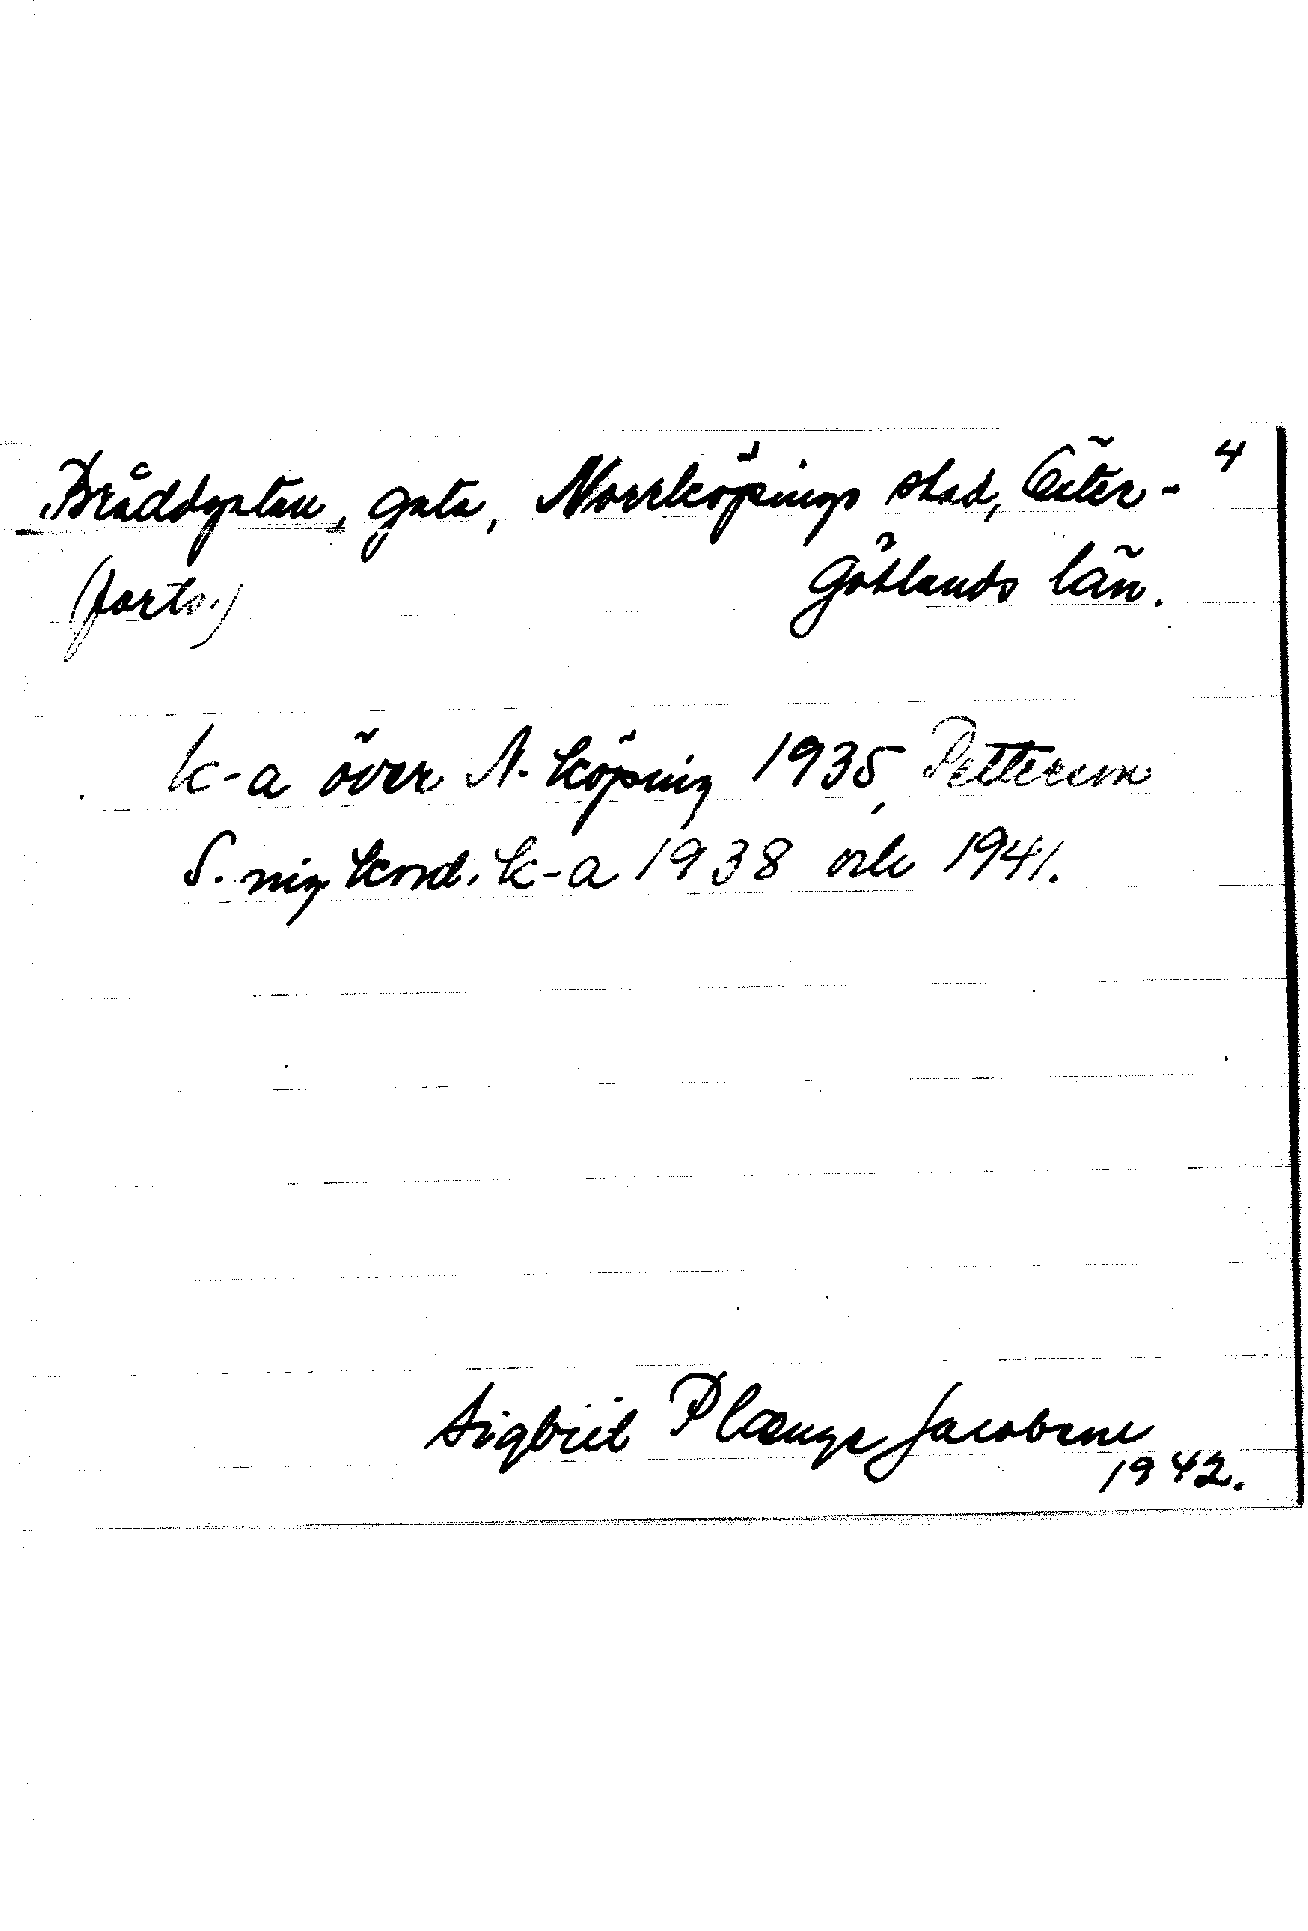 Bråddgatan, gata, Norrköpings stad, Öster- 4
(forts.) Götlands län.
k-a över N. köping 1935, Petterson
S. nig kord. k-a 1938 och 1941.
Sigbrit Plænge Jacobson
1942.